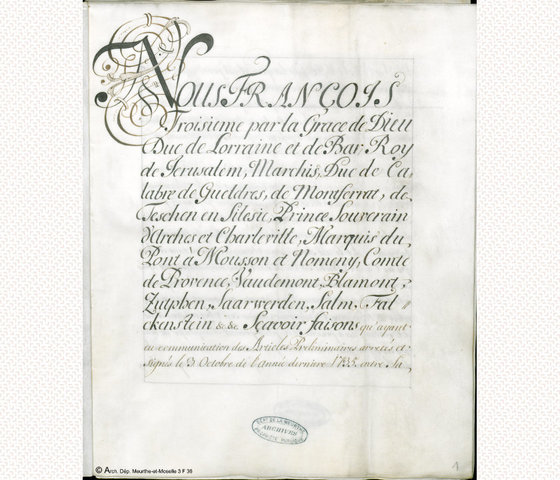 NOUS FRANÇOIS
Troisieme par la Grace de Dieu
Duc de Lorraine et de Bar Roy
de Jerusalem, Marchis, Duc de Ca,
labre de Gueldres, de Montferrat, de
Teschen en Silesie, Prince Souverain
d'Arches et Charleville, Marquis du
Pont à Mousson et Nomeny, Comte
de Provence, Vaudemont, Blamont,
Zutphen, Saarwerden, Salm, Fal "
ckenstein &c &c Sçavoir faisons qu'ayant
eu communication des Articles Preliminaires arretés et
signés le 3. Octobre de l'année derniere 1735. entre Sa
DEPT DE LA MEURTHE
ARCHIVES
1
© Arch. Dép. Meurthe-et-Moselle 3 F 36